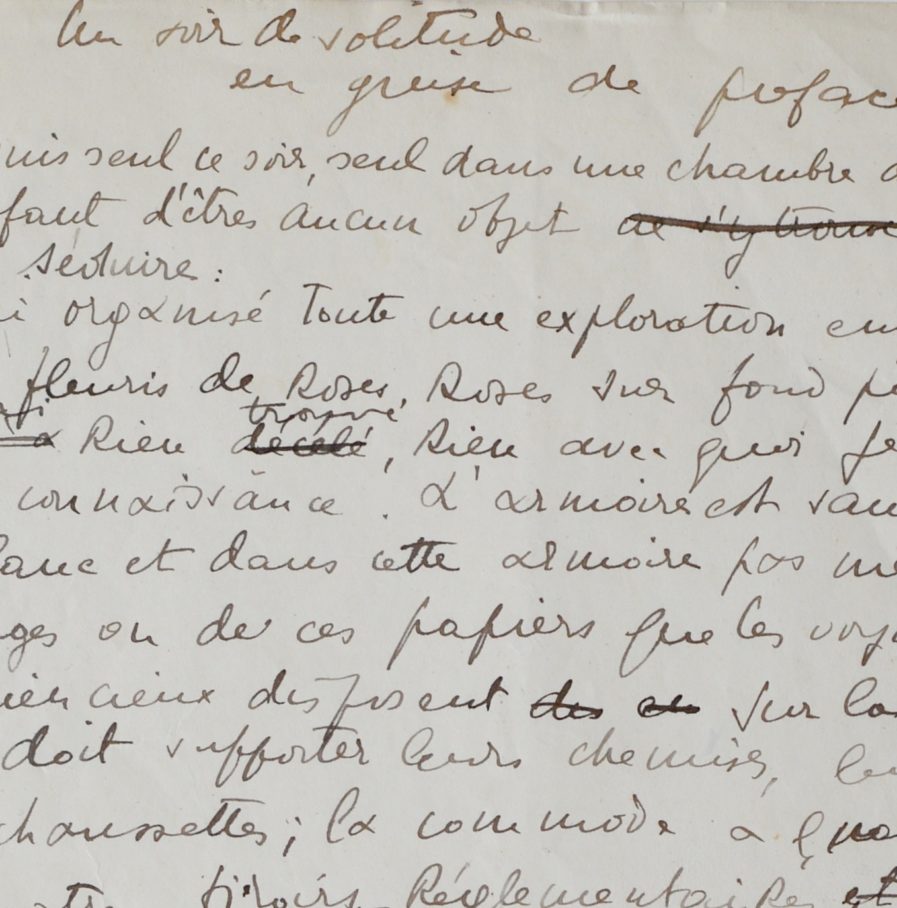 Un soir de solitude
en guise de préface
uis seul ce soir, seul dans une chambre d
faut d'êtres aucun objet de s'y trouve
séduire :
i organisé toute une exploration en
fleuris de Roses, Roses sur fond
trouvé
a Rien décelé, Rien avec quoi je
connaissance. L'armoire est san
lanc et dans cette armoire pas mê
ges ou de ces papiers que les voya
iencieux disposent des en sur la
doit supporter leurs chemises, leu
chaussettes ; la commode a qua
tiroirs Réglementaires et